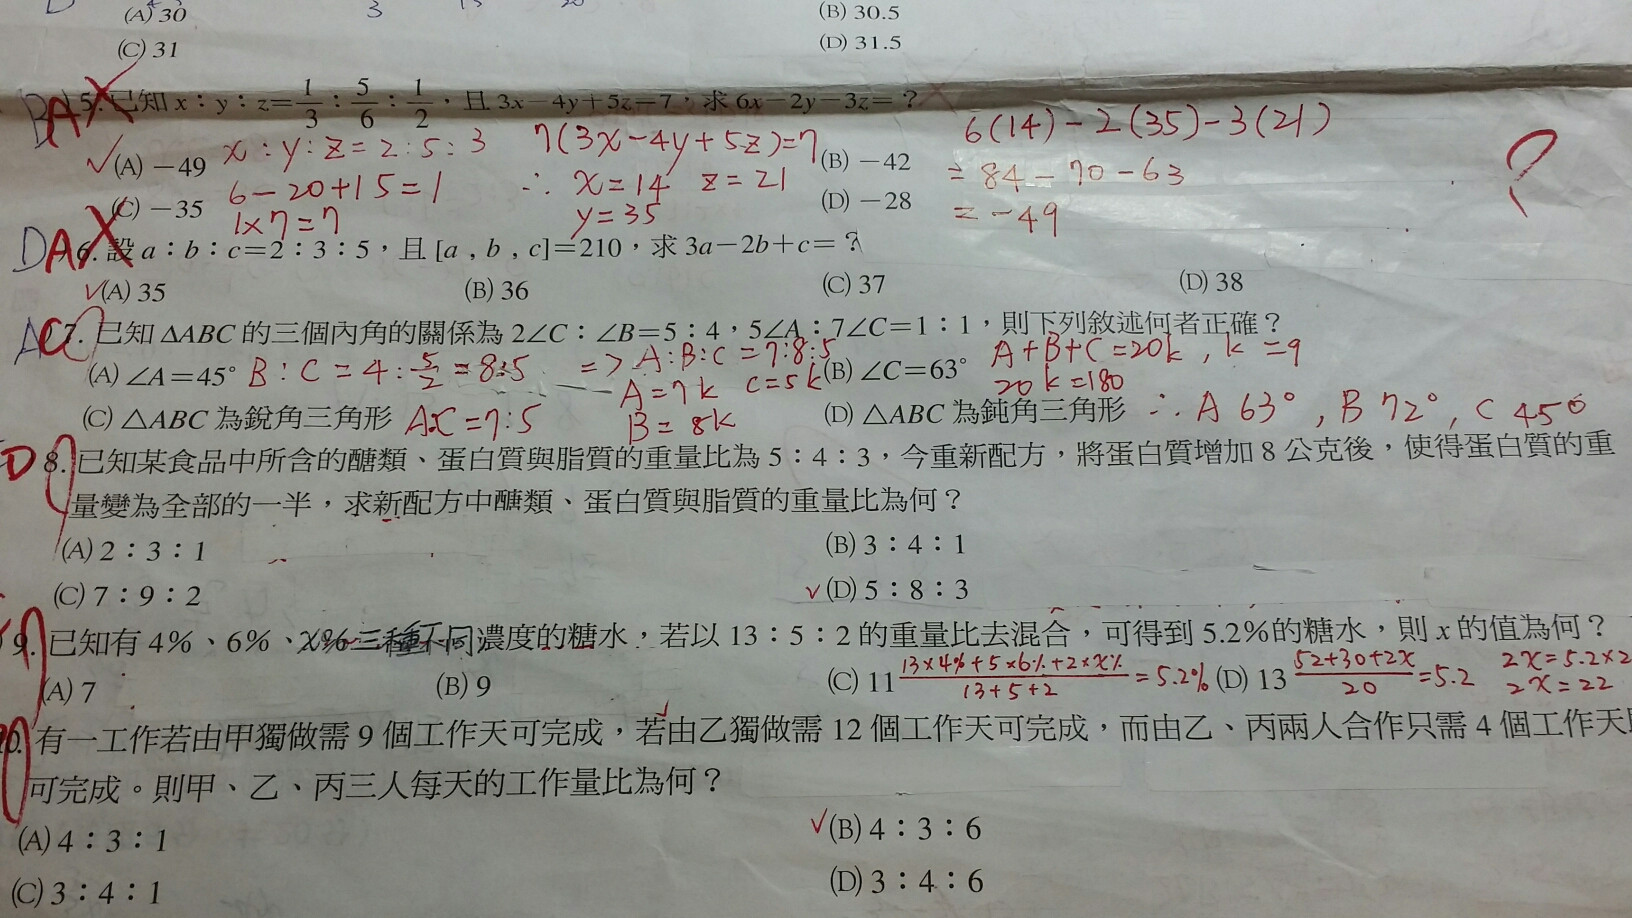 (A) 30
(B) 30.5
(C) 31
(D) 31.5
5. 已知 x：y：z=1/3：5/6：1/2，且 3x－4y＋5z＝7，求 6x－2y－3z＝？
(A) －49
x : y : z = 2 : 5 : 3
7(3x－4y＋5z)=7
(B) －42
6(14)－2(35)－3(21)
(C) －35
6－20＋15＝1
∴ x=14 z=21
(D) －28
= 84－70－63
1×7=7
y=35
= －49
6. 設 a：b：c＝2：3：5，且 [a , b , c]＝210，求 3a－2b＋c＝？
(A) 35
(B) 36
(C) 37
(D) 38
7. 已知 △ABC 的三個內角的關係為 2∠C：∠B＝5：4，5∠A：7∠C＝1：1，則下列敘述何者正確？
(A) ∠A＝45°
B : C = 4 : 5/2 = 8:5
=> A:B:C = 7:8:5
(B) ∠C＝63°
A+B+C=20k , k=9
A=7k C=5k
20k=180
(C) △ABC 為銳角三角形
A:C=7:5
B=8k
(D) △ABC 為鈍角三角形
∴ A 63° , B 72° , C 45°
D 8. 已知某食品中所含的醣類、蛋白質與脂質的重量比為 5：4：3，今重新配方，將蛋白質增加 8 公克後，使得蛋白質的重
量變為全部的一半，求新配方中醣類、蛋白質與脂質的重量比為何？
(A) 2：3：1
(B) 3：4：1
(C) 7：9：2
(D) 5：8：3
9. 已知有 4%、6%、x%三種不同濃度的糖水，若以 13：5：2 的重量比去混合，可得到 5.2%的糖水，則 x 的值為何？
(A) 7
(B) 9
(C) 11
13×4%+5×6%+2×x%/13+5+2 = 5.2%
(D) 13
52+30+2x/20 = 5.2
2x=5.2×2
2x=22
10. 有一工作若由甲獨做需 9 個工作天可完成，若由乙獨做需 12 個工作天可完成，而由乙、丙兩人合作只需 4 個工作天
可完成。則甲、乙、丙三人每天的工作量比為何？
(A) 4：3：1
(B) 4：3：6
(C) 3：4：1
(D) 3：4：6